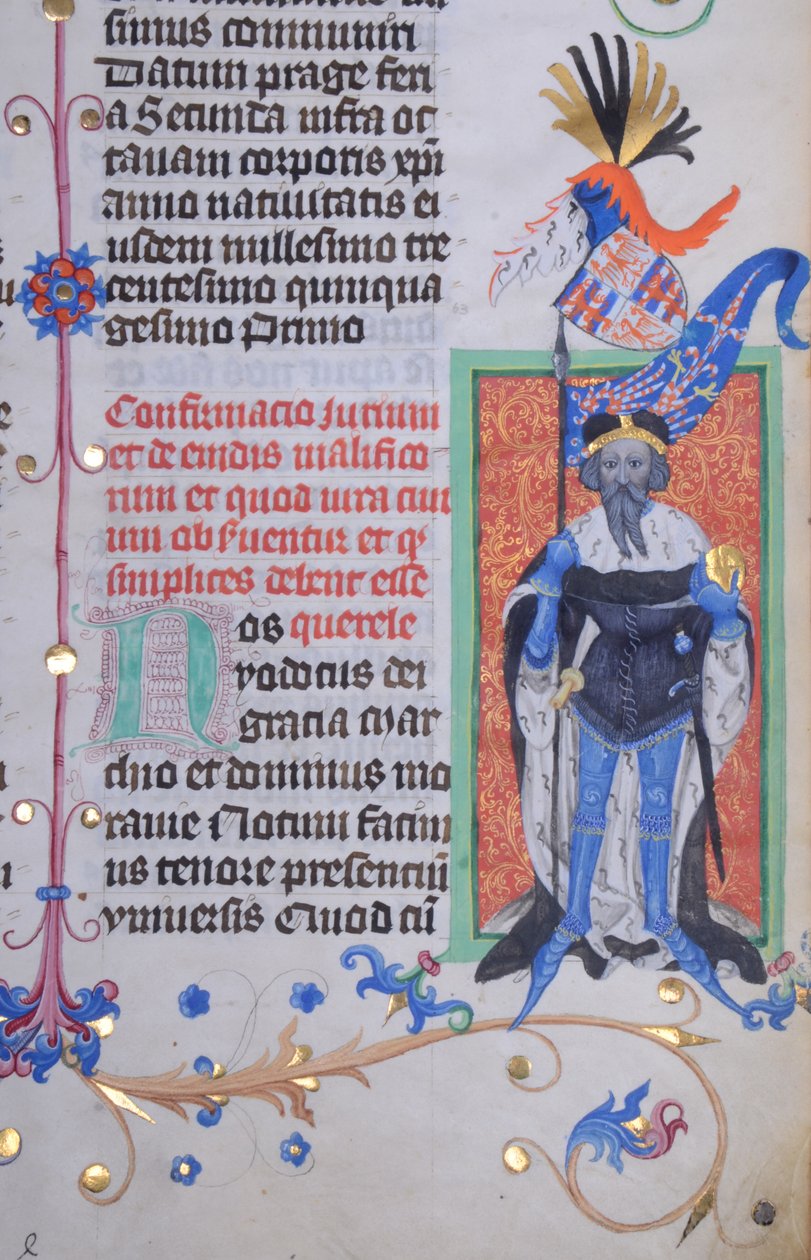 simus communiri
Datum prage feri
a Secunda infra oc
tavam corporis xpi
anno nativitatis ei
usdem millesimo tre
centesimo quinqua
gesimo Primo
63
Confirmacio Iurium
et de emdis malifico
rum et quod iura civi
um obsuentur et qd
simplices debent esse
Nos querele
yodocus dei
gracia Mar
chio et dominus mo
ravie Notum facim
us tenore presenciu
universis Quod cu